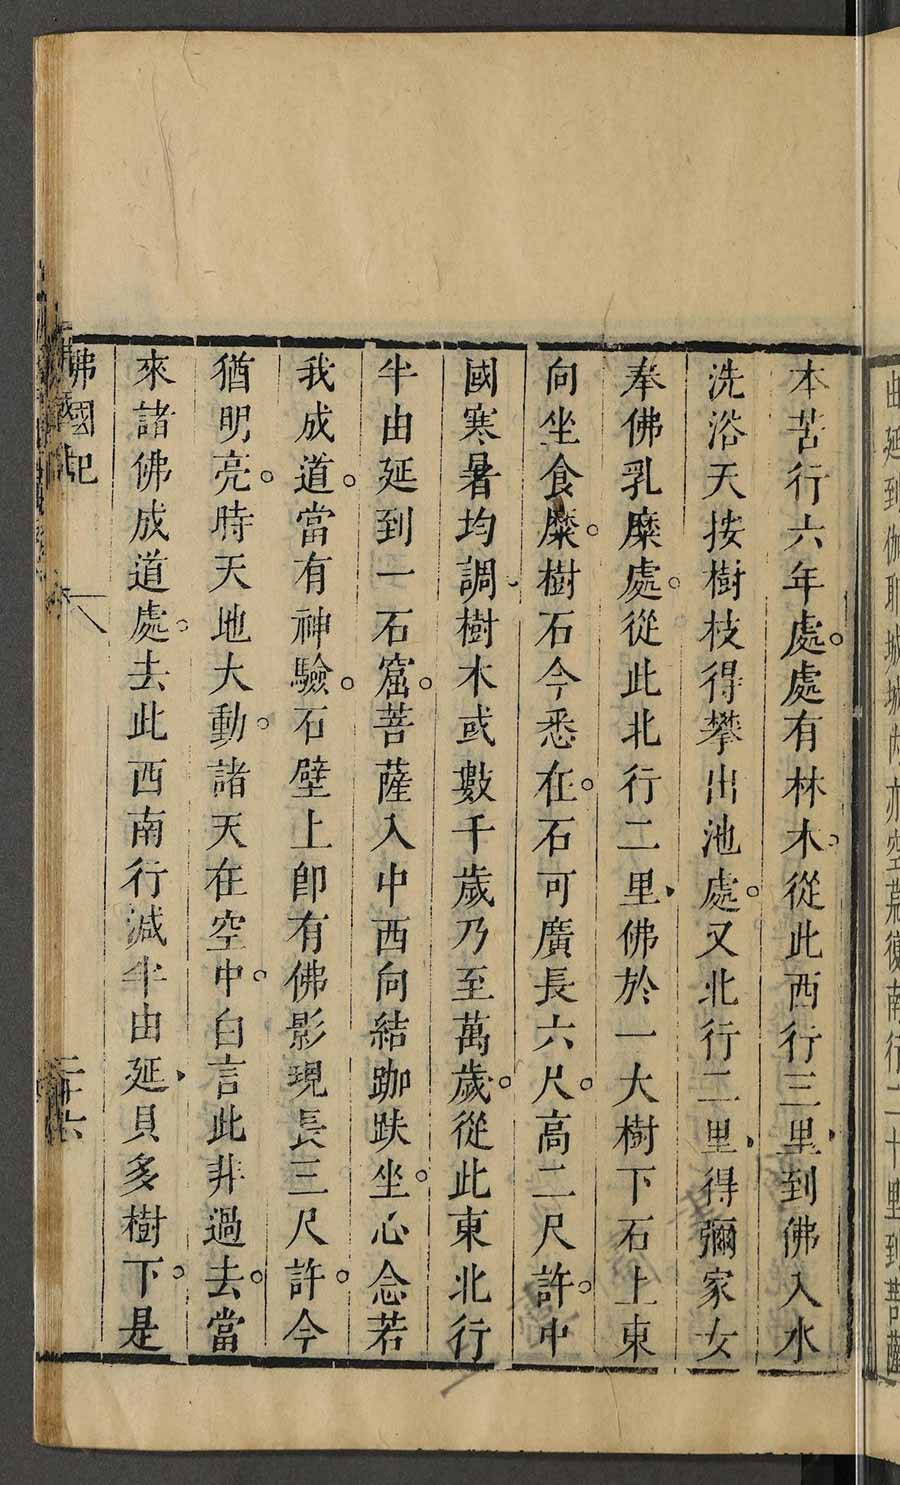 由延到伽耶城城內亦空荒復南行二十里到菩薩
本苦行六年處。處有林木。從此西行三里、到佛入水
洗浴天按樹枝得攀出池處。又北行二里、得彌家女
奉佛乳糜處。從此北行二里、佛於一大樹下石上東
向坐食糜。樹石今悉在。石可廣長六尺。高二尺許。中
國寒暑均調、樹木或數千歲乃至萬歲。從此東北行
半由延到一石窟。菩薩入中西向結跏趺坐。心念若
我成道。當有神驗。石壁上卽有佛影現長三尺許。今
猶明亮。時天地大動。諸天在空中。白言此非過去。當
來諸佛成道處。去此西南行減半由延、貝多樹下。是
佛國記
二十六